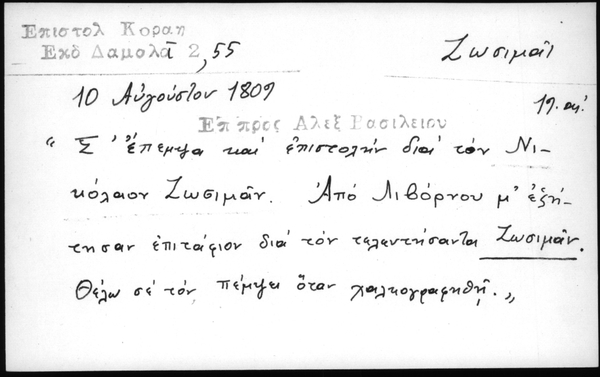 Επιστολ Κοραη
Εκδ Δαμαλᾶ 2,55
Ζωσιμᾶι
10 Αὐγούστου 1809
19. αἰ.
Επ προς Αλεξ Βασιλειου
“Σ' ἔπεμψα καὶ ἐπιστολὴν διὰ τὸν Νι-
κόλαον Ζωσιμᾶν. Ἀπὸ Λιβόρνου μ' ἐζή-
τησαν ἐπιτάφιον διὰ τὸν τελευτήσαντα Ζωσιμᾶν.
Θέλω σὲ τὸν πέμψει ὅταν χαλκογραφηθῇ.„